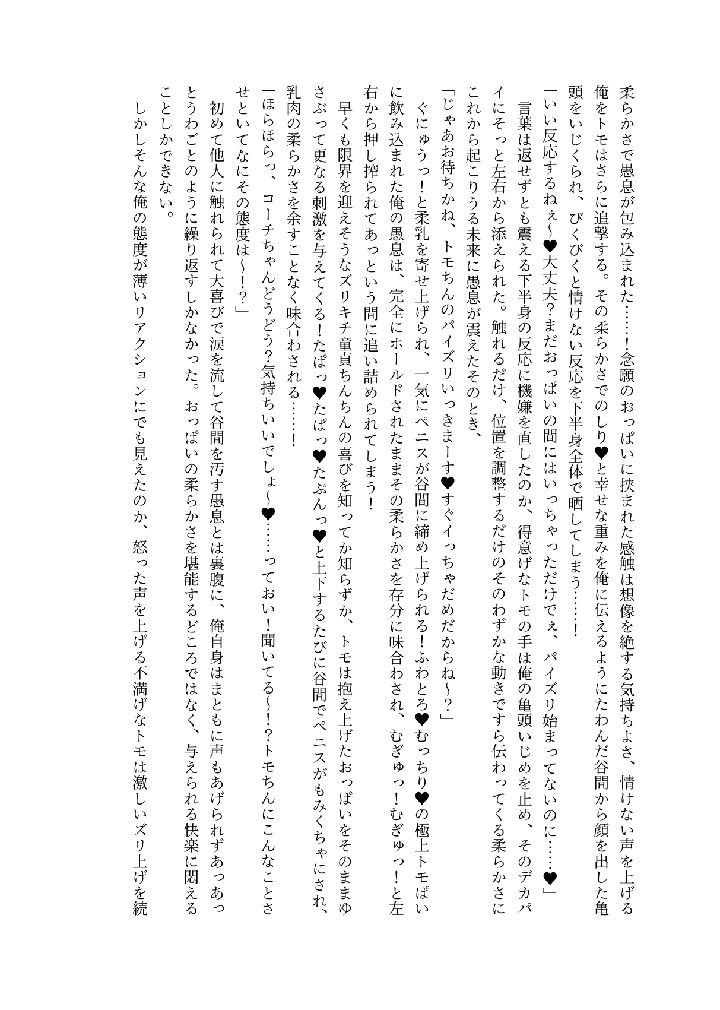 柔らかさで愚息が包み込まれた……！念願のおっぱいに挟まれた感触は想像を絶する気持ちよさ、情けない声を上げる
俺をトモはさらに追撃する。その柔らかさでのしり♥と幸せな重みを俺に伝えるようにたわんだ谷間から顔を出した亀
頭をいじくられ、びくびくと情けない反応を下半身全体で晒してしまう……！
「いい反応するねぇ～♥大丈夫？まだおっぱいの間にはいっちゃっただけでぇ、パイズリ始まってないのに……♥」
言葉は返せずとも震える下半身の反応に機嫌を直したのか、得意げなトモの手は俺の亀頭いじめを止め、そのデカパ
イにそっと左右から添えられた。触れるだけ、位置を調整するだけのそのわずかな動きですら伝わってくる柔らかさに
これから起こりうる未来に愚息が震えたそのとき、
「じゃあお待ちかね、トモちんのパイズリいっきまーす♥すぐイっちゃだめだからね～？」
ぐにゅうっ！と柔乳を寄せ上げられ、一気にペニスが谷間に締め上げられる！ふわとろ♥むっちり♥の極上トモぱい
に飲み込まれた俺の愚息は、完全にホールドされたままその柔らかさを存分に味合わされ、むぎゅっ！むぎゅっ！と左
右から押し搾られてあっという間に追い詰められてしまう！
早くも限界を迎えそうなズリキチ童貞ちんちんの喜びを知ってか知らずか、トモは抱え上げたおっぱいをそのままゆ
さぶって更なる刺激を与えてくる！たぱっ♥たぱっ♥たぷんっ♥と上下するたびに谷間でペニスがもみくちゃにされ、
乳肉の柔らかさを余すことなく味合わされる……！
「ほらほらっ、コーチちゃんどうどう？気持ちいいでしょ～♥……っておい！聞いてる～！？トモちんにこんなことさ
せといてなにその態度は～！？」
初めて他人に触れられて大喜びで涙を流して谷間を汚す愚息とは裏腹に、俺自身はまともに声もあげられずあっあっ
とうわごとのように繰り返すしかなかった。おっぱいの柔らかさを堪能するどころではなく、与えられる快楽に悶える
ことしかできない。
しかしそんな俺の態度が薄いリアクションにでも見えたのか、怒った声を上げる不満げなトモは激しいズリ上げを続